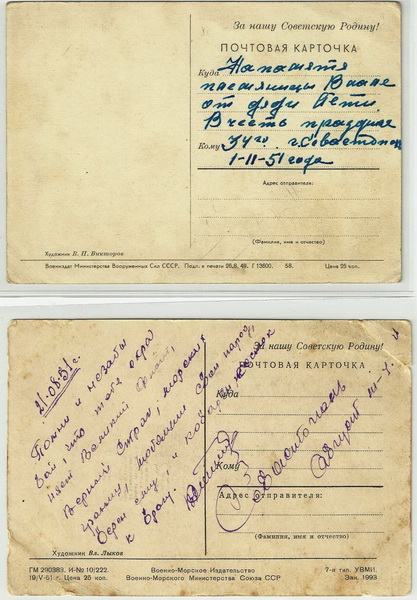 За нашу Советскую Родину!
ПОЧТОВАЯ КАРТОЧКА
Куда На память
от дяди Пети.
В честь праздника
Кому г. Севастополь
1-11-51 года
Адрес отправителя:
(Фамилия, имя и отчество)
Художник В. П. Викторов
Воениздат Министерства Вооруженных Сил СССР. Подп. к печати 26.8. 48. Г 13600. 58. Цена 25 коп.
За нашу Советскую Родину!
ПОЧТОВАЯ КАРТОЧКА
21/08.51 г.
Помни и незабы
вай, что тебе охра
няет Великий Флот,
Верный страж, морских
границ, свой народ,
Верен ему, и
к врагу.
Куда
Кому
Севастополь
Август
Адрес отправителя:
(Фамилия, имя и отчество)
Художник Вл. Лыков
ГМ 290383. И-№ 10/222.
19/V-51 г. Цена 25 коп.
Военно-Морское Издательство
Военно-Морского Министерства Союза ССР
7-я тип. УВМИ.
Зак. 1993